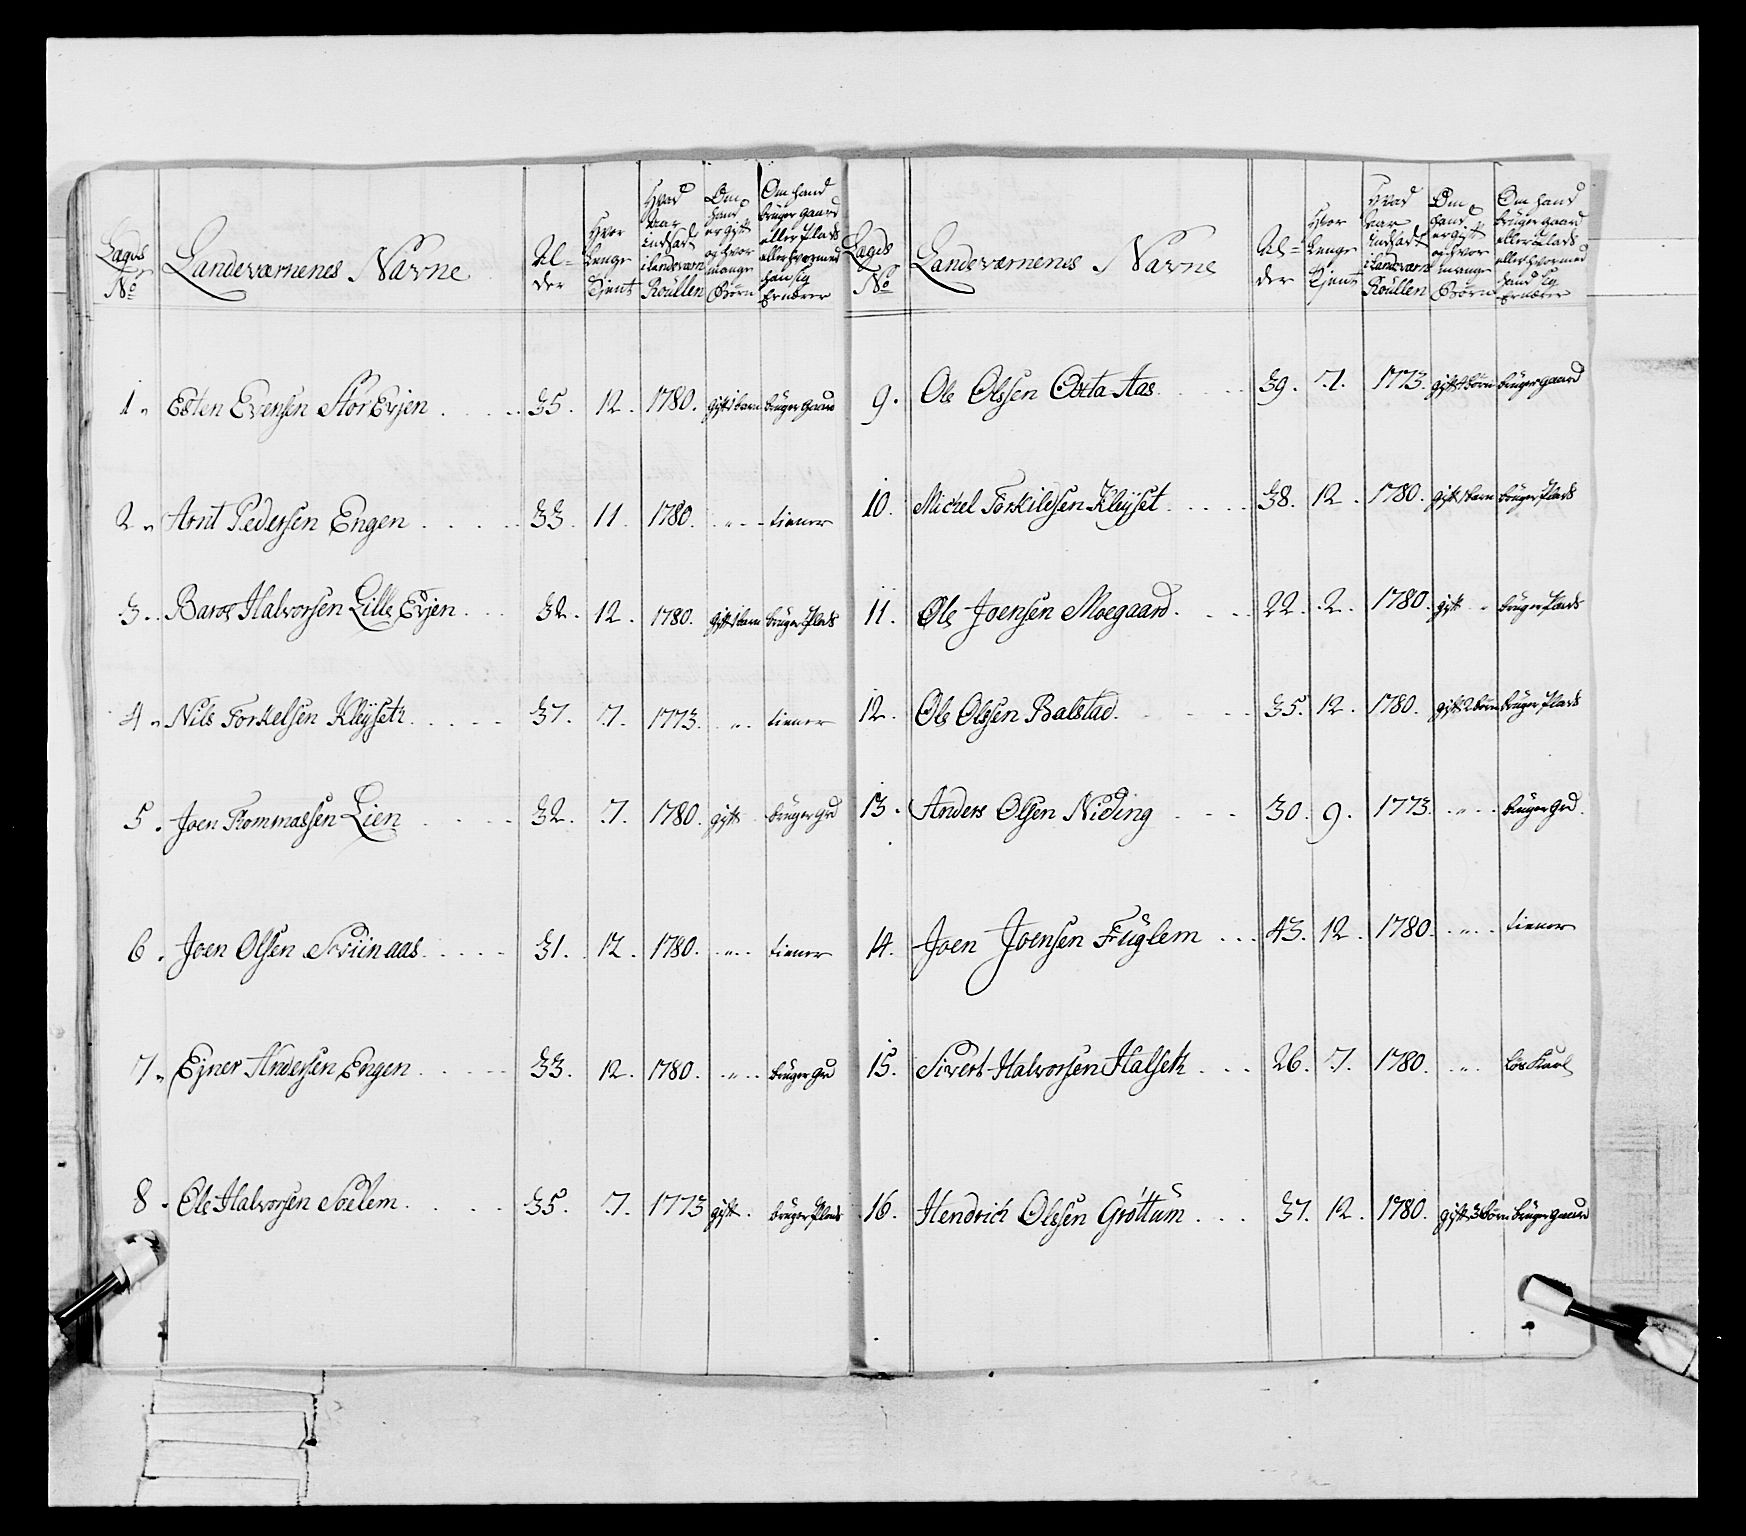 Lægds No
Landeværnenes Navne
Al=
der
Hvor
Lenge
Tjent
Hvad
Aar
indsadt
i Landværn
Roullen
Om
hand
er gift
og hvor
mange
Børn
Om hand
bruger gaard
eller Plads
eller hvormed
hand sig
Ernærer
1. Esten Evensen StorEvjen 35. 12. 1780. gift 1 barn bruger gaard
2. Arnt Pedersen Engen 33. 11. 1780. " tiener
3. Baroe Halvorsen Lille Evjen 32. 12. 1780. gift 1 barn bruger Plads
4. Nils Torkelsen Kleÿseth 37. 7. 1773. " tiener
5. Joen Tommassen Lien 32. 7. 1780. gift bruger Grd
6. Joen Olsen 31. 12. 1780. " tiener
7. Ejner Andersen Engen 33. 12. 1780. " bruger Grd
8. Ole Halvorsen Solem 35. 7. 1773 gift bruger Plads
Lægds
No
Landeværnenes Navne
Al=
der
Hvor
Lenge
Tjent
Hvad
Aar
indsadt
i Landværn
Roullen
Om
hand
er gift
og hvor
mange
Børn
Om hand
bruger gaard
eller Plads
eller hvormed
hand sig
Ernærer
9. Ole Olssen Aas 39. 7. 1773. gift 4 børn bruger gaard
10. Michel Torkildsen Kleÿset 38. 12. 1780. gift 1 barn bruger Plads
11. Ole Joensen Moegaard 22. 2. 1780. gift " bruger Plads
12. Ole Olssen Balstad 35. 12. 1780. gift 2 børn bruger Plads
13. Anders Olsen Niding 30. 9. 1773. " bruger Grd.
14. Joen Joensen Fuglem 43. 12. 1780. " tiener
15. Sivert Halvorsen Halseth 26. 7. 1780. " løs Karl
16. Hendrich Olssen Grøttum 37. 12. 1780. gift 3 børn bruger gaard